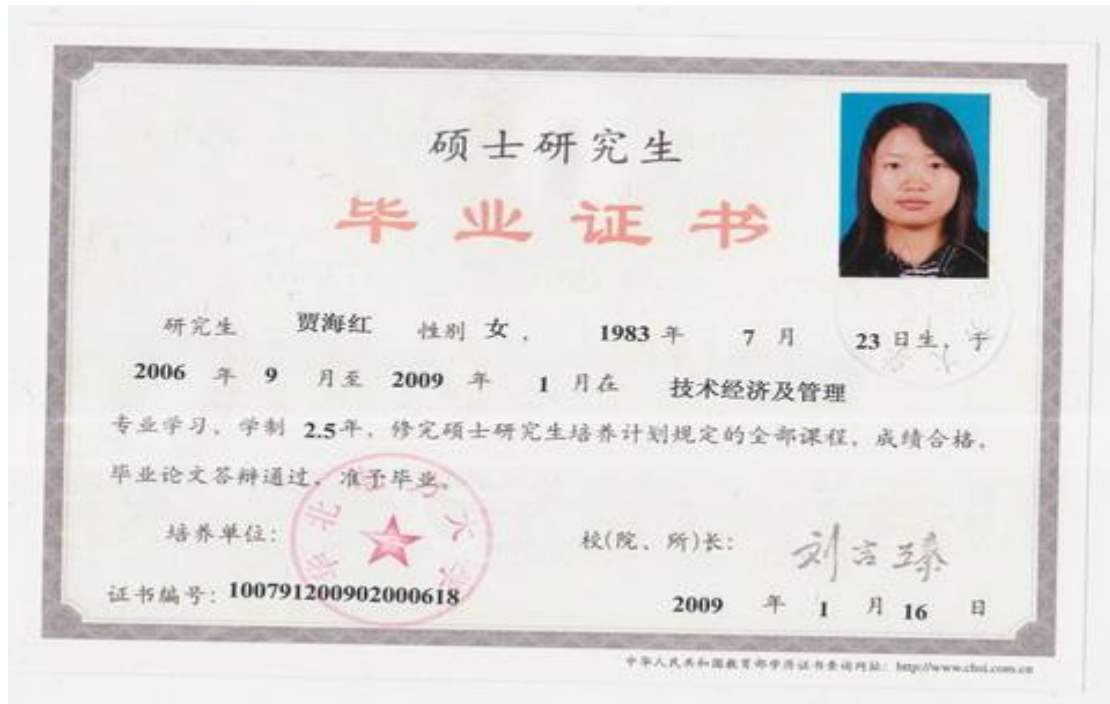 硕士研究生
毕业证书
研究生 贾海红 性别 女， 1983 年 7 月 23 日生，于
2006 年 9 月至 2009 年 1 月在 技术经济及管理
专业学习，学制 2.5年，修完硕士研究生培养计划规定的全部课程，成绩合格，
毕业论文答辩通过，准予毕业。
华北电力大学
培养单位： 校(院、所)长： 刘吉臻
证书编号：100791200902000618 2009 年 1 月 16 日
中华人民共和国教育部学历证书查询网址：http://www.chsi.com.cn